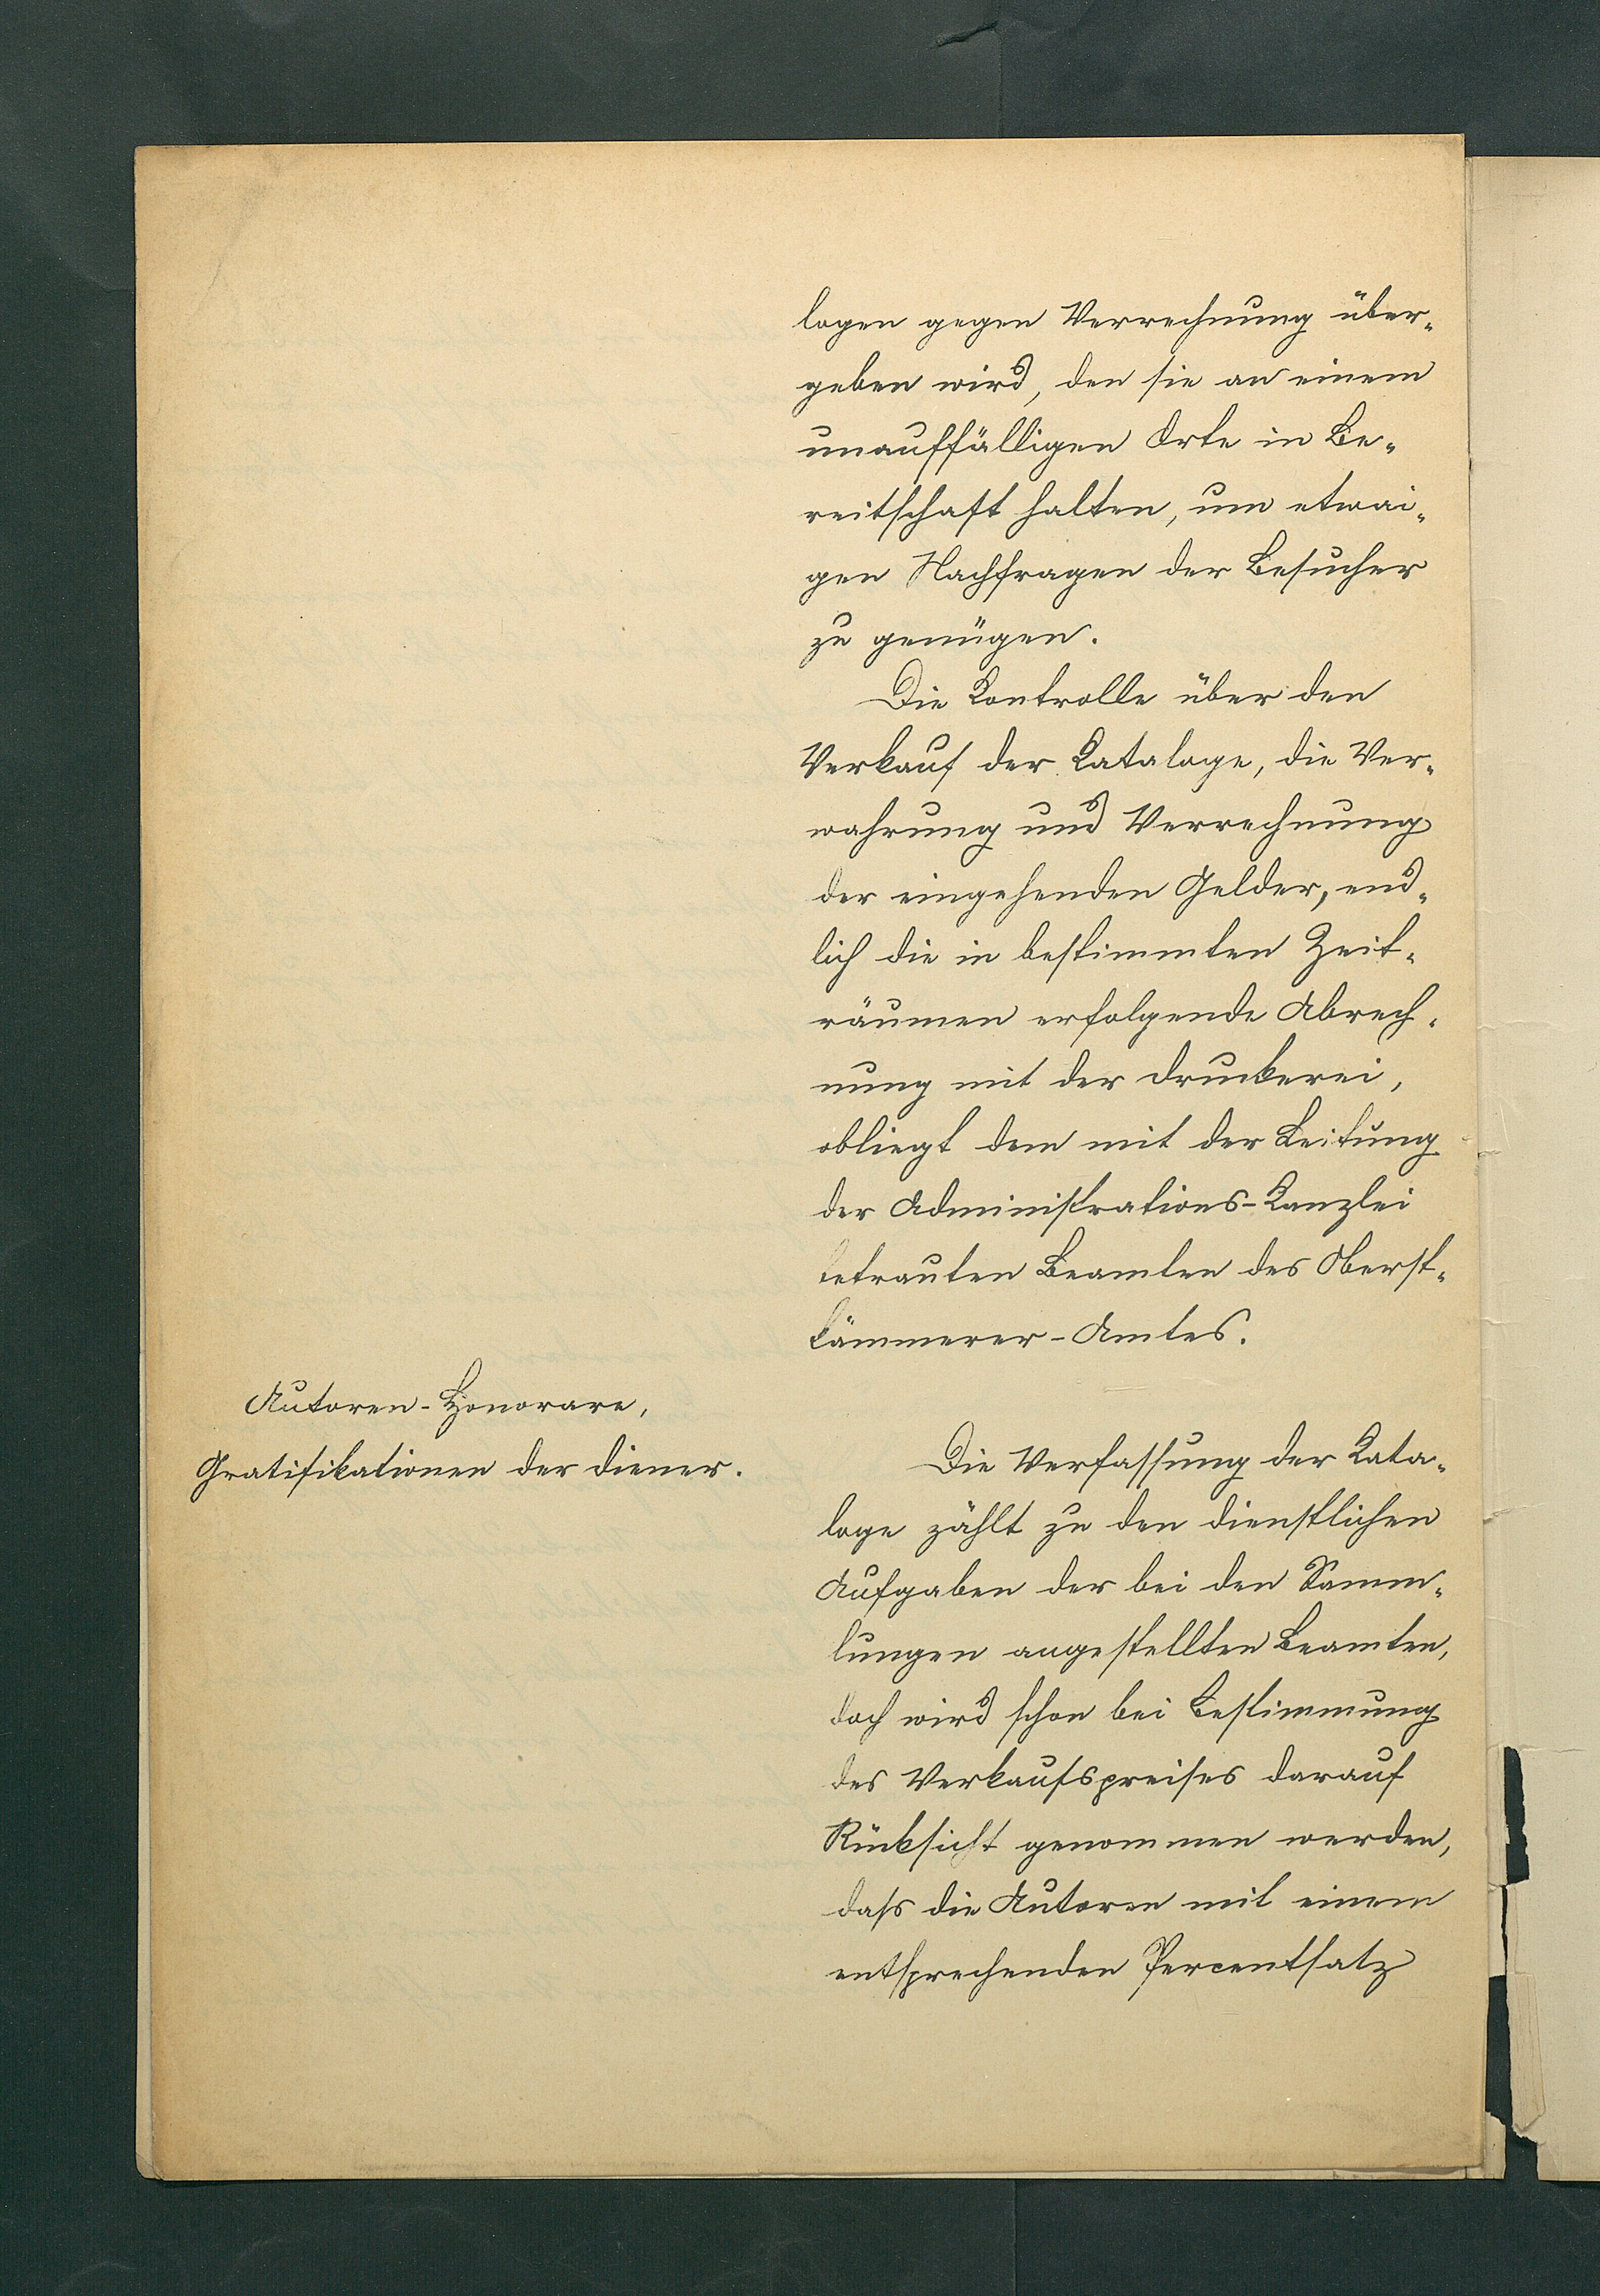 logen gegen Verrechnung über-
geben wird, den sie an einem
unauffälligen Orte in Be-
reitschaft halten, um etwai-
gen Nachfragen der Besucher
zu genügen.
Die Kontrolle über den
Verkauf der Kataloge, die Ver-
wahrung und Verrechnung
der eingehenden Gelder, end-
lich die in bestimmten Zeit-
räumen erfolgende Abrech-
nung mit der Druckerei,
obliegt dem mit der Leitung
der Administrations-Kanzlei
betrauten Beamten des Oberst-
kämmerer-Amtes.
Autoren-Honorare,
Gratifikationen der Diener.
Die Verfassung der Kata-
loge zählt zu den dienstlichen
Aufgaben der bei den Samm-
lungen angestellten Beamten,
doch wird schon bei Bestimmung
des Verkaufspreises darauf
Rücksicht genommen werden,
dass die Autoren mit einem
entsprechenden Percentsatz